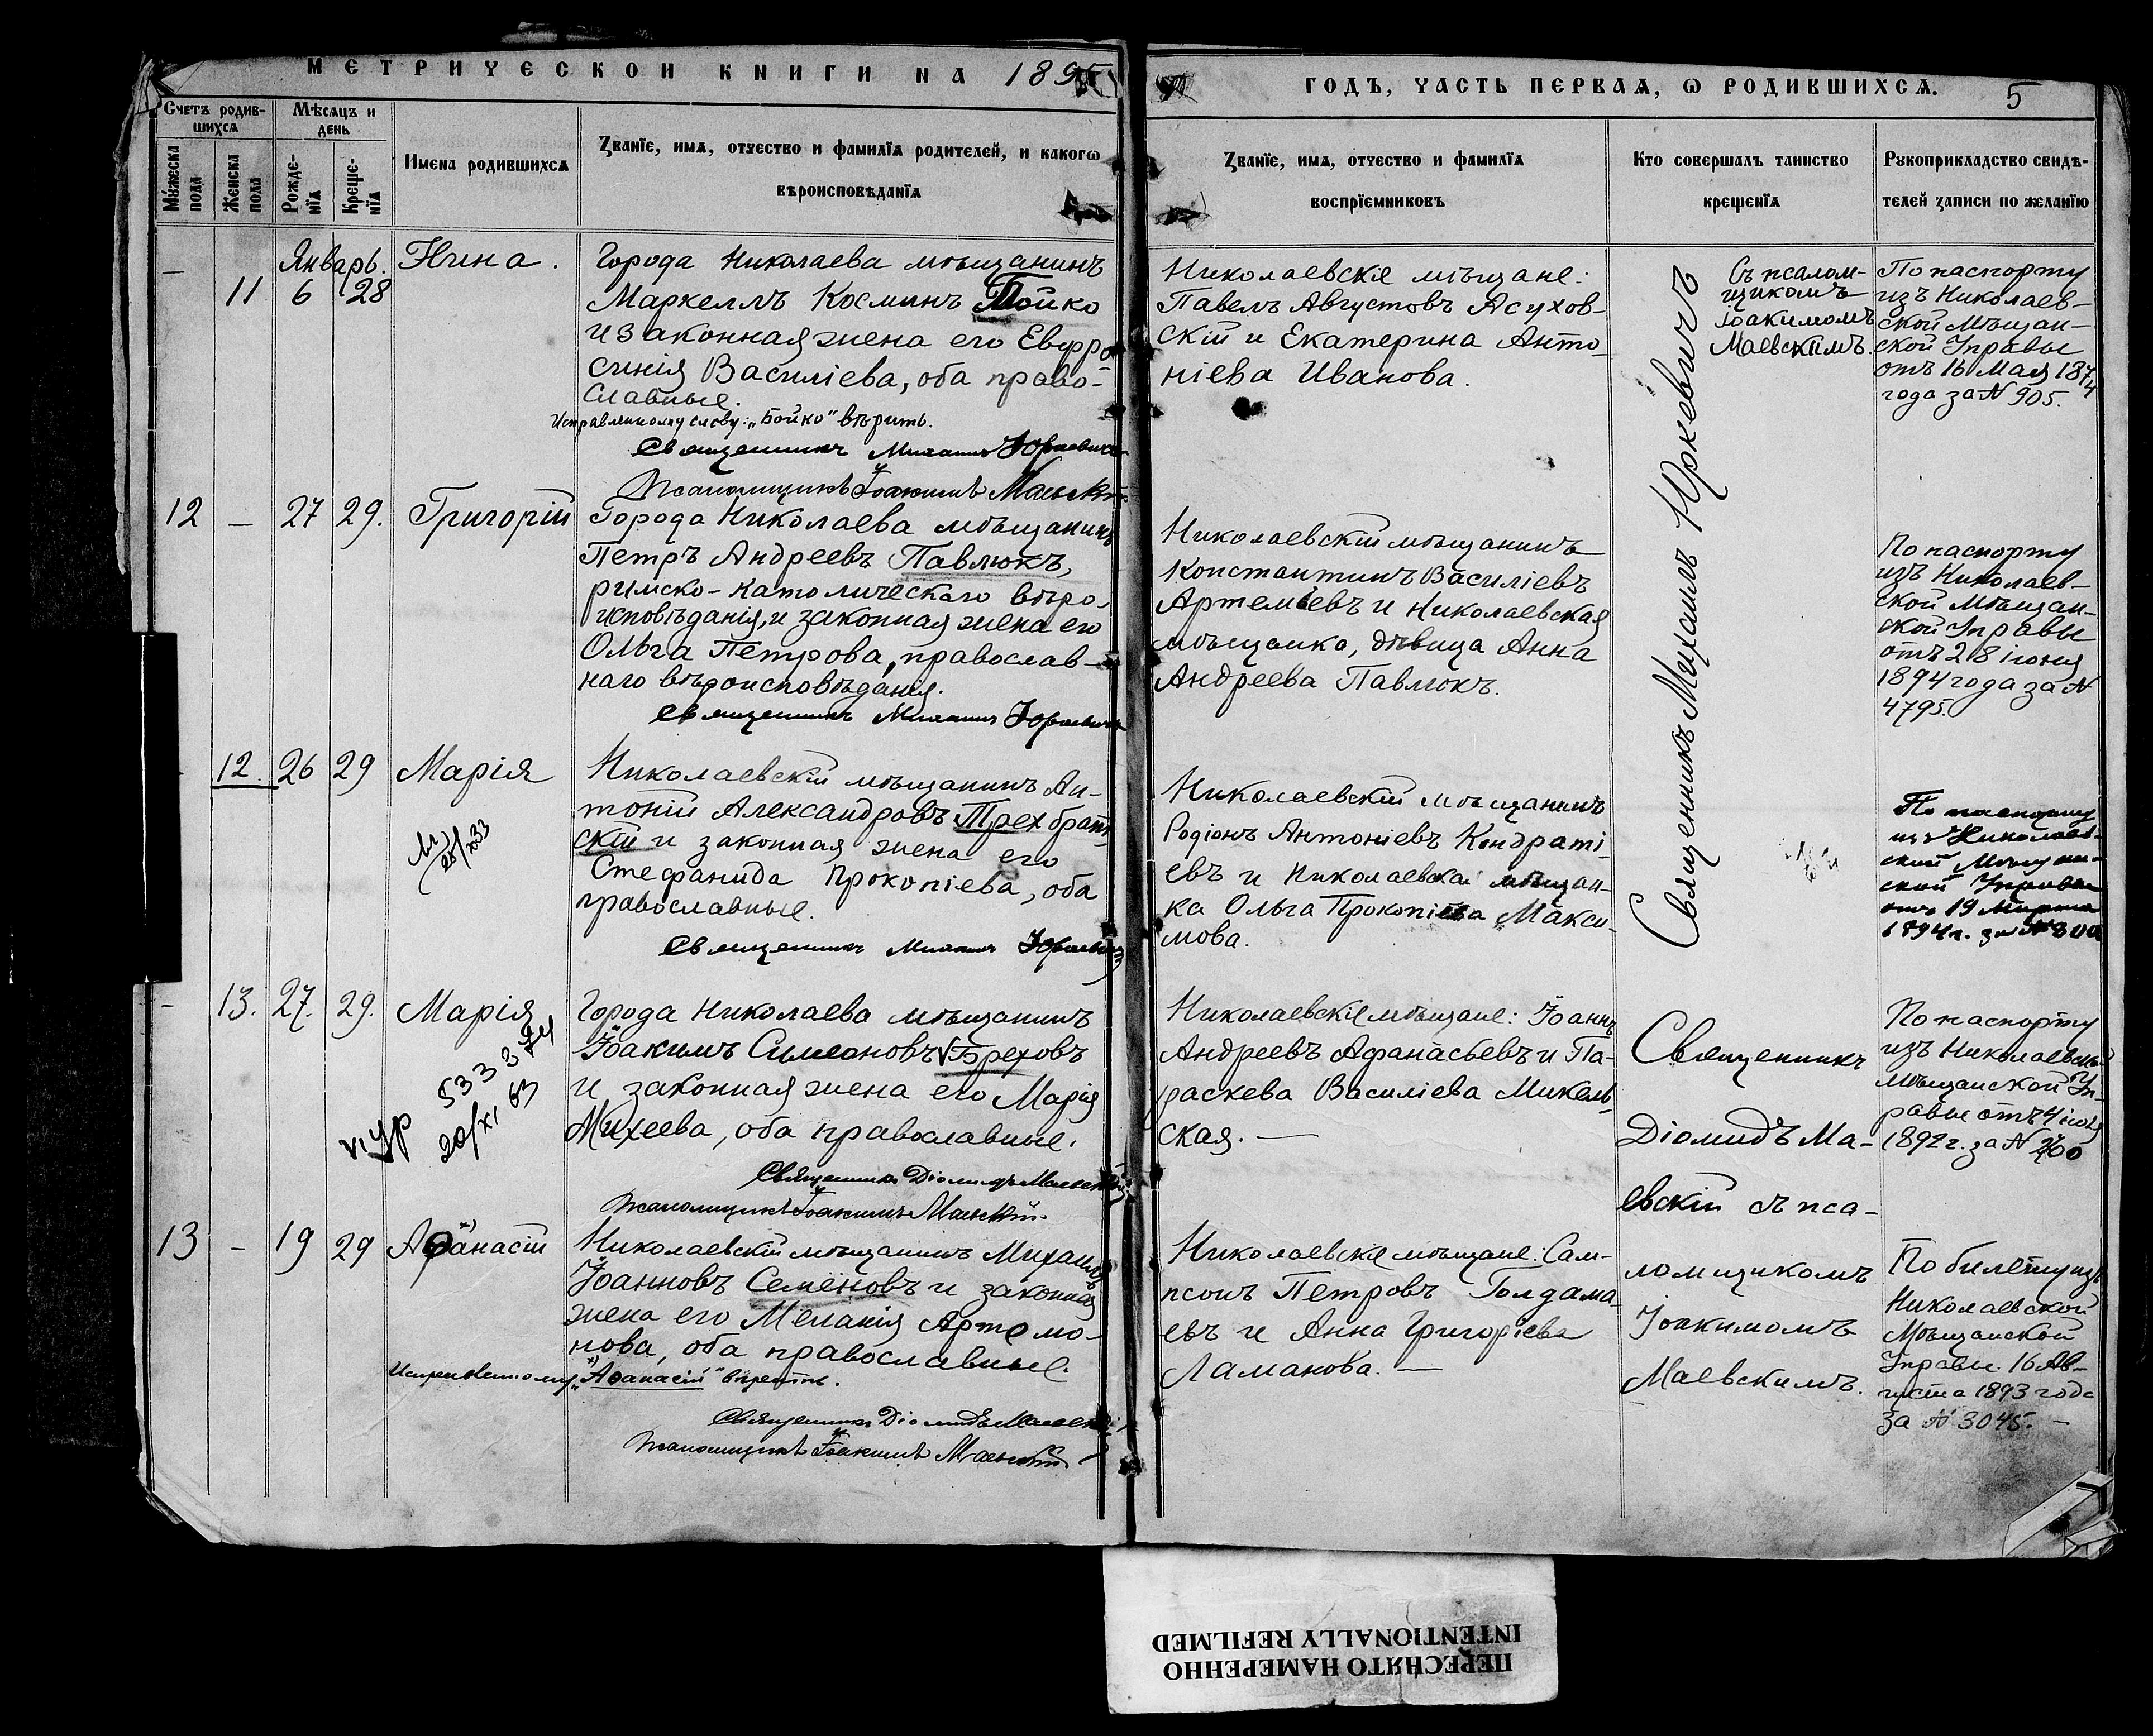 МЕТРИЧЕСКОЙ КНИГИ НА 1895
ГОДЪ, ЧАСТЬ ПЕРВАЯ, Ѡ РОДИВШИХСЯ.
5
Счетъ родив-
шихся
Мѣсяцъ и
день
Мужеска
пола
Женска
пола
Рожде-
нїя
Креще-
нїя
Имена родившихся
Званїе, имя, отчество и фамилїя родителей, и какогѡ
вѣроисповѣданїя
Званїе, имя, отчество и фамилїя
воспрїемниковъ
Кто совершалъ таинство
крещенїя
Рукоприкладство свидѣ-
телей записи по желанїю
Январь.
— 11 6 28
Нина.
Города Николаева мѣщанинъ
Маркеллъ Косминъ Бойко
и законная жена его Евфро
синія Василіева, оба право-
славные.
Исправленному слову: „Бойко" вѣрить.
Священникъ Михаилъ Юркевичъ
Псаломщикъ Іоакимъ Маевскій
Николаевскіе мѣщане:
Павелъ Августовъ Асухов-
скій и Екатерина Анто-
ніева Иванова.
Священникъ Михаилъ Юркевичъ
Съ псалом-
щикомъ
Іоакимомъ
Маевскимъ.
По паспорту
изъ Николаев-
ской Мѣщан-
ской Управы
отъ 16 Мая 1874
года за № 905.
12 — 27 29.
Григорій
Города Николаева мѣщанинъ
Петръ Андреевъ Павлюкъ,
римско-католическаго вѣро-
исповѣданія, и законная жена его
Ольга Петрова, православ-
наго вѣроисповѣданія.
Священникъ Михаилъ Юркевичъ
Николаевскій мѣщанинъ
Константинъ Василіевъ
Артемьевъ и Николаевская
мѣщанка, дѣвица Анна
Андреева Павлюкъ.
По паспорту
изъ Николаев-
ской Мѣщан-
ской Управы
отъ 28 іюня
1894 года за №
4795.
12. 26 29
Марія
25/X33
Николаевскій мѣщанинъ Ан-
тоній Александровъ Трехбрат-
скій и законная жена его
Стефанида Прокопіева, оба
православные.
Священникъ Михаилъ Юркевичъ
Николаевскій мѣщанинъ
Родіонъ Антоніевъ Кондраті-
евъ и Николаевская мѣщан-
ка Ольга Прокопіева Макси-
мова.
По паспорту
изъ Николаев-
ской Мѣщан-
ской Управы
отъ 19 Марта
1894 г. за №
- 13. 27. 29.
Марія
53 3 3 74
20/XI 63
Города Николаева мѣщанинъ
Іоакимъ Симеоновъ Бреховъ
и законная жена его Марія
Михеева, оба православные.
Священникъ Діомидъ Маевскій
Псаломщикъ Іоакимъ Маевскій.
Николаевскіе мѣщане: Іоаннъ
Андреевъ Афанасьевъ и Па-
раскева Василіева Микель-
ская. —
Священникъ
Діомидъ Ма-
евскій съ пса-
ломщикомъ
Іоакимомъ
Маевскимъ.
По паспорту
изъ Николаевской
Мѣщанской Уп-
равы отъ 4 іюня
1892 г. за №
13 — 19 29
Аѳанасій
Николаевскій мѣщанинъ Михаилъ
Іоанновъ Семёновъ и законная
жена его Меланія Артемо-
нова, оба православные.
Исправленному „Аѳанасій" вѣрить.
Священникъ Діомидъ Маевскій
Псаломщикъ Іоакимъ Маевскій
Николаевскіе мѣщане: Сам-
псонъ Петровъ Голдама-
евъ и Анна Григоріева
Ламанова. —
По билету изъ
Николаевской
Мѣщанской
Управы. 16 Ав-
густа 1893 года
за № 3045. —
ПЕРЕСНЯТО НАМЕРЕННО
INTENTIONALLY REFILMED